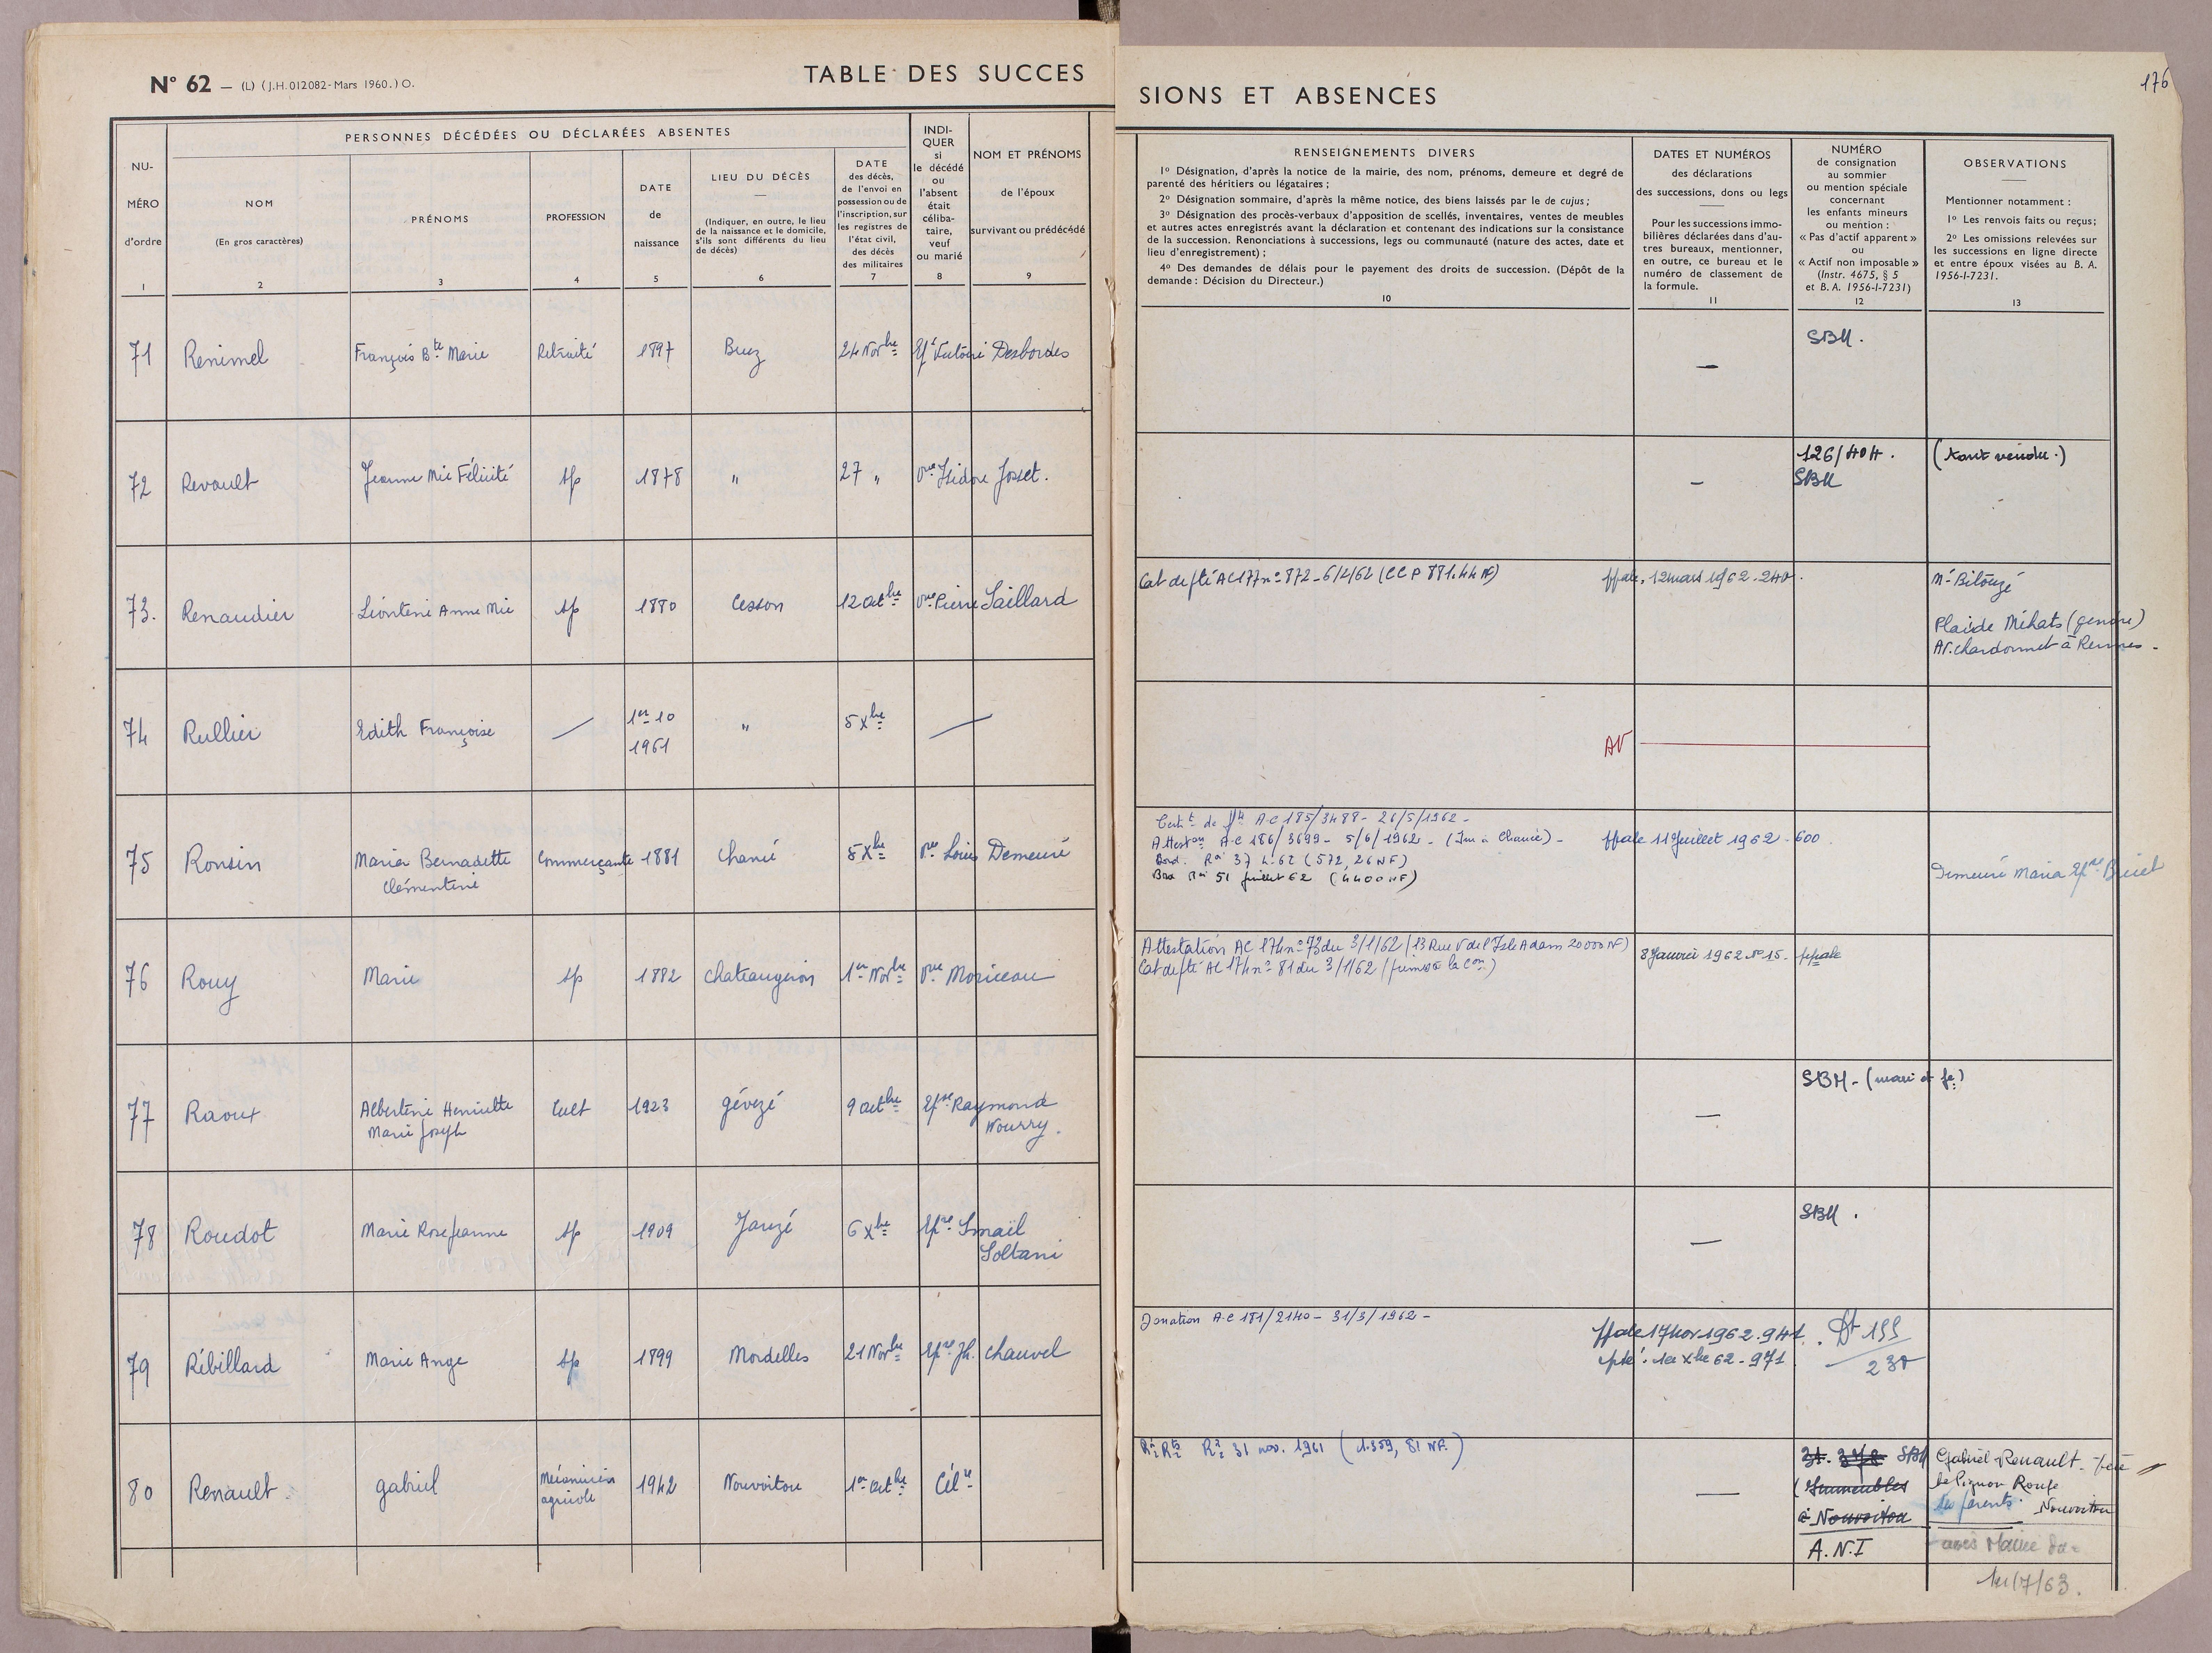 N° 62 — (L) (J.H. 012082 - Mars 1960.) O.
TABLE DES SUCCESSIONS ET ABSENCES
176
PERSONNES DÉCÉDÉES OU DÉCLARÉES ABSENTES
NU-
MÉRO
d'ordre
1
NOM
(En gros caractères)
2
PRÉNOMS
3
PROFESSION
4
DATE
de
naissance
5
LIEU DU DÉCÈS
(Indiquer, en outre, le lieu
de la naissance et le domicile,
s'ils sont différents du lieu
de décès)
6
DATE
des décès,
de l'envoi en
possession ou de
l'inscription, sur
les registres de
l'état civil,
des décès
des militaires
7
INDI-
QUER
si
le décédé
ou
l'absent
était
céliba-
taire,
veuf
ou marié
8
NOM ET PRÉNOMS
de l'époux
survivant ou prédécédé
9
RENSEIGNEMENTS DIVERS
1° Désignation, d'après la notice de la mairie, des nom, prénoms, demeure et degré de
parenté des héritiers ou légataires ;
2° Désignation sommaire, d'après la même notice, des biens laissés par le de cujus ;
3° Désignation des procès-verbaux d'apposition de scellés, inventaires, ventes de meubles
et autres actes enregistrés avant la déclaration et contenant des indications sur la consistance
de la succession. Renonciations à successions, legs ou communauté (nature des actes, date et
lieu d'enregistrement) ;
4° Des demandes de délais pour le payement des droits de succession. (Dépôt de la
demande : Décision du Directeur.)
10
DATES ET NUMÉROS
des déclarations
des successions, dons ou legs
Pour les successions immo-
bilières déclarées dans d'au-
tres bureaux, mentionner,
en outre, ce bureau et le
numéro de classement de
la formule.
11
NUMÉRO
de consignation
au sommier
ou mention spéciale
concernant
les enfants mineurs
ou mention :
« Pas d'actif apparent »
ou
« Actif non imposable »
(Instr. 4675, § 5
et B. A. 1956-I-7231)
12
OBSERVATIONS
Mentionner notamment :
1° Les renvois faits ou reçus ;
2° Les omissions relevées sur
les successions en ligne directe
et entre époux visées au B. A.
1956-I-7231.
13
71 Renimel François Bte Marie Retraité 1897 Bruz 24 Novbre Desbordes — SBM.
72 Revault Jeanne Mie Félicité sp 1878 " 27 " vve Isidore Josset. — 126/404. (tout vendu.)
SBM
73. Renaudier Léontine Anne Mie sp 1880 Cesson 12 Octbre vve Pierre Saillard
Cat de pté AC 177 n° 872 - 6/2/62 (CCP 881.44 NF) ppale, 12 mars 1962. 240.
Placide Méhats (gendre)
Av. Chardonnet à Rennes -
74 Rullier Edith Françoise — 1er 10 " 5 Xbre —
1961
AV
75 Ronsin Maria Bernadette Commerçante 1881 Chancé 5 Xbre vve Louis Demeuré
Clémentine
Certt de pté AC 185/3488 - 26/5/1962 -
Attestaon AC 186/3699 - 5/6/1962 - (Im à Chancé) - ppale 11 Juillet 1962 - 600
(572,26 NF)
51 Juillet 62 (4400 NF)
Demeuré Maria Epse
76 Rouy Marie sp 1882 Chateaugiron 1er Novbre vve Moriceau
Attestation AC 174 n° 73 du 3/1/62 (13 Rue V de l'Isle Adam 20000 NF) 8 Janvier 1962 N° 15. ppale
Cat de pté AC 174 n° 81 du 3/1/62
77 Raoux Albertine Henriette Cult 1923 Gévezé 9 Octbre Epse Raymond
Marie Joseph Nourry.
— SBM - (mari et fe)
78 Roudot Marie Rose Jeanne sp 1909 Janzé 6 Xbre Epse Smaïl
Soltani
— SBM.
79 Rébillard Marie Ange sp 1899 Mordelles 21 Novbre Epse Jh. Chauvel
Donation AC 181/2140 - 31/3/1962 -
ppale 17 Nov 1962. 941.
1er Xbre 62 - 971
80 Renault Gabriel Mécanicien 1942 Nouvoitou 1er Octbre Célre
agricole
31 nov. 1961 (1.359,81 NF.)
— SBM
(Immeubles
à Nouvoitou
A.N.I
Gabriel Renault
le Pignon Rouge
les parents Nouvoitou
avis Mairie
1er/7/63.